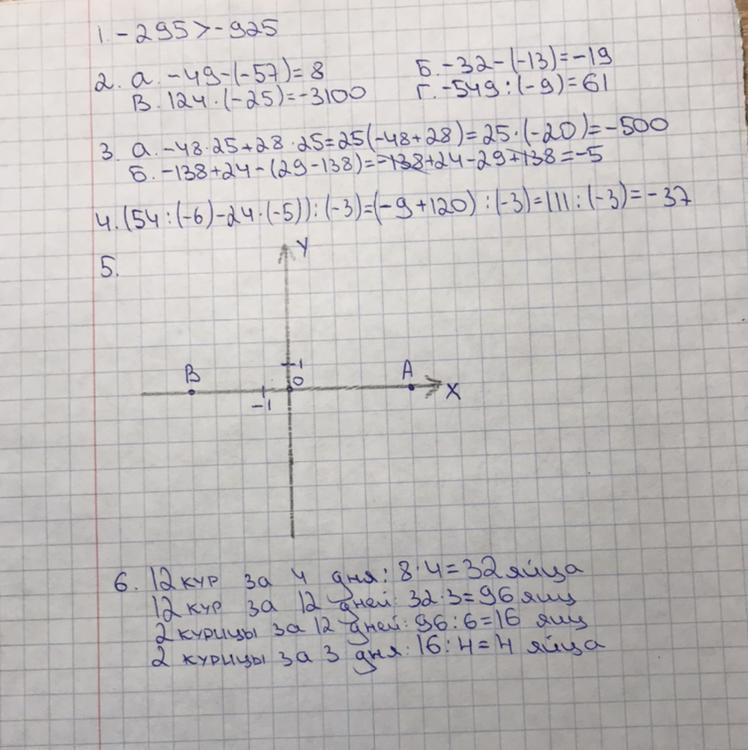 1. -295>-925
2. а. -49-(-57)=8 Б. -32-(-13)=-19
В. 124·(-25)=-3100 Г. -549:(-9)=61
3. а. -48·25+28·25=25(-48+28)=25·(-20)=-500
Б. -138+24-(29-138)=-138+24-29+138=-5
4. (54:(-6)-24·(-5)):(-3)=(-9+120):(-3)=111:(-3)=-37
5.
Y
1
B 0 A
-1 X
6. 12 кур за 4 дня: 8·4=32 яйца
12 кур за 12 дней: 32·3=96 яиц
2 курицы за 12 дней: 96:6=16 яиц
2 курицы за 3 дня: 16:4=4 яйца